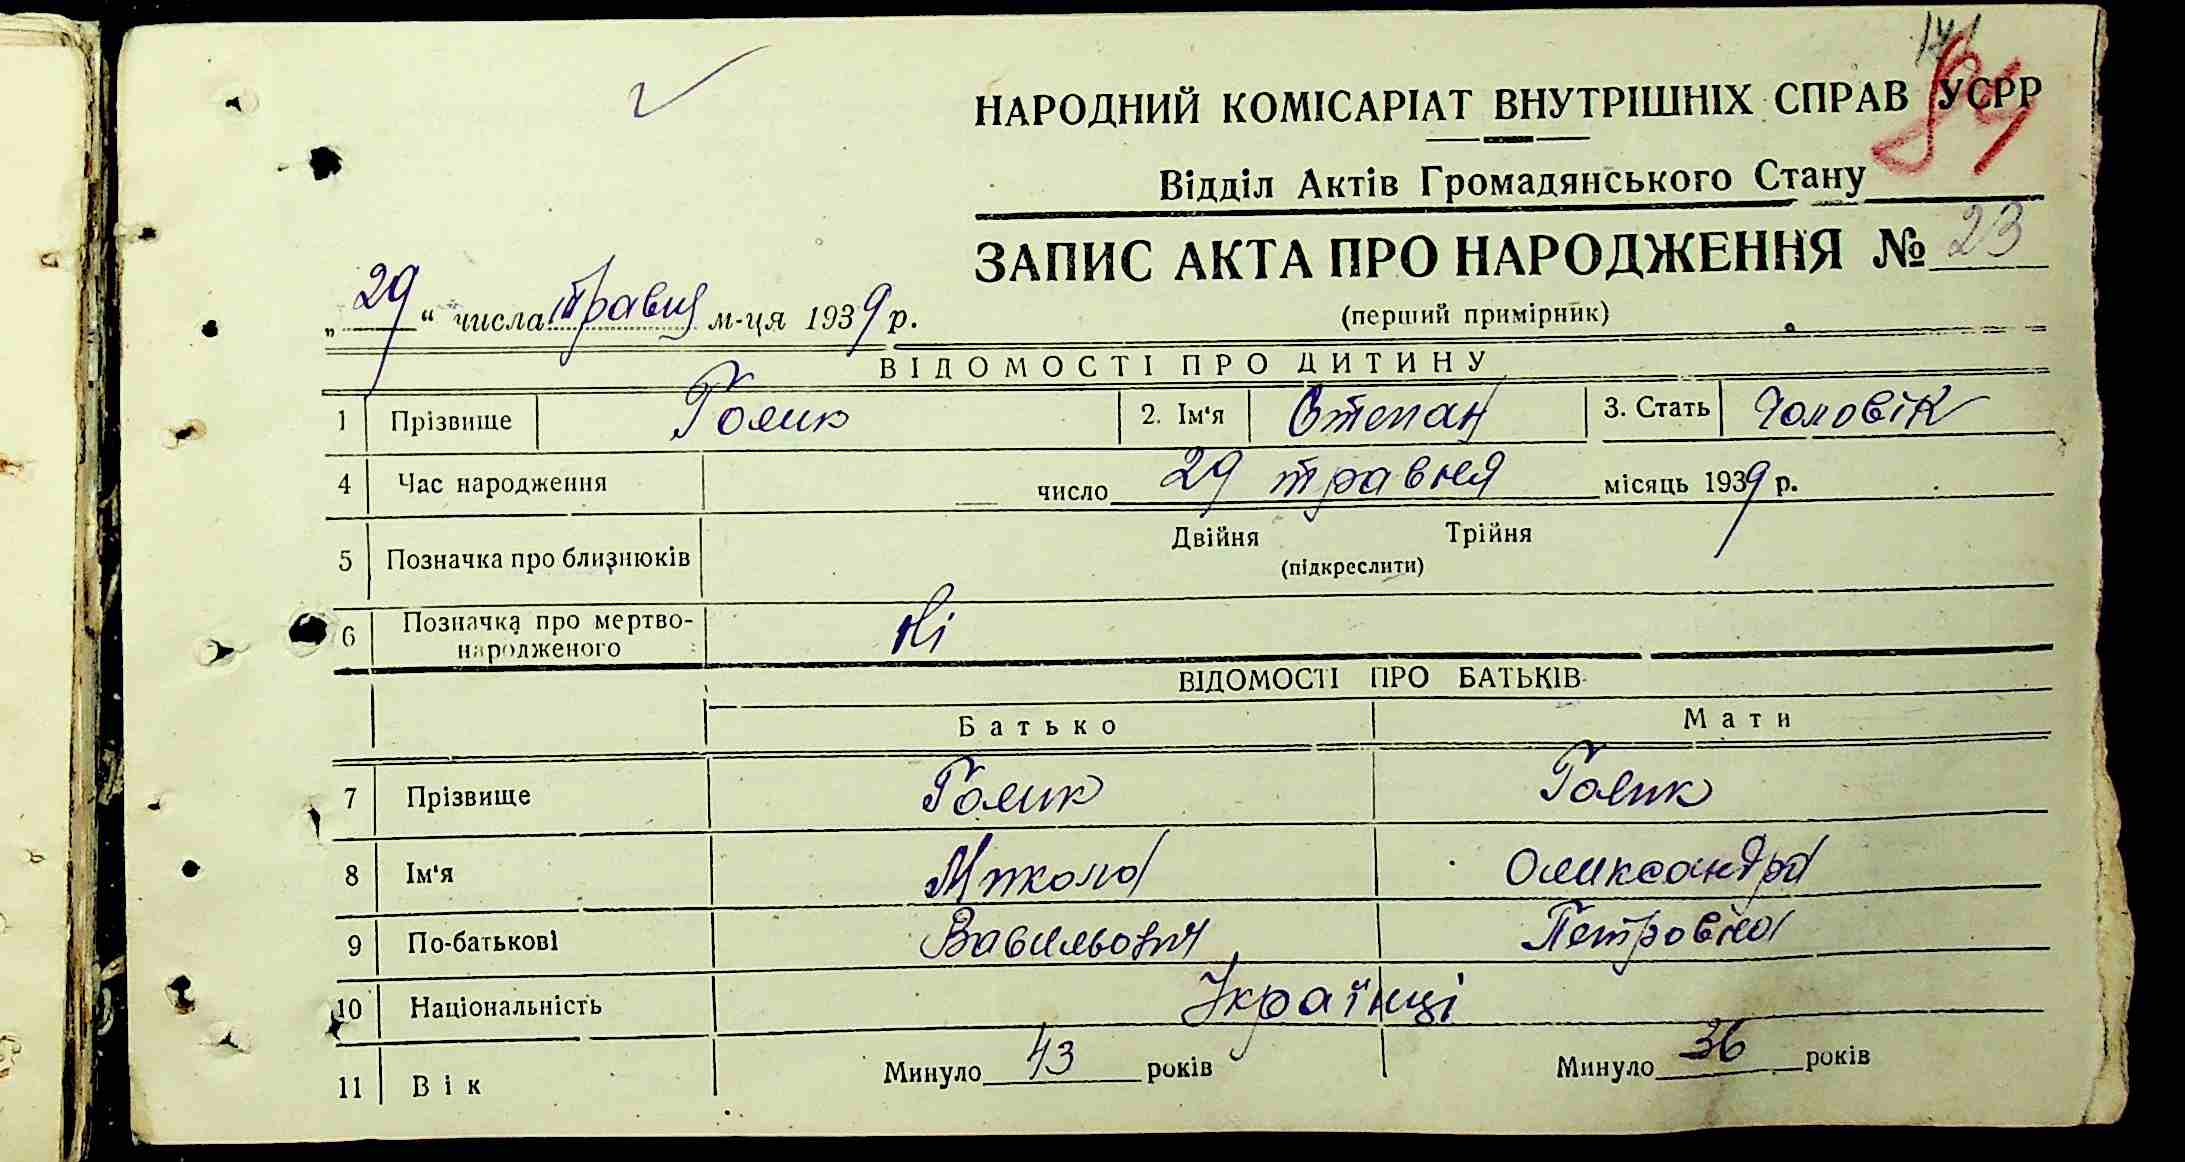 НАРОДНИЙ КОМІСАРІАТ ВНУТРІШНІХ СПРАВ УСРР
Відділ Актів Громадянського Стану
ЗАПИС АКТА ПРО НАРОДЖЕННЯ № 23
(перший примірник)
„29“ числа травня м-ця 1939 р.
ВІДОМОСТІ ПРО ДИТИНУ
1 Прізвище Голик 2. Ім'я Степан 3. Стать Чоловік
4 Час народження число 29 травня місяць 1939 р.
5 Позначка про близнюків Двійня Трійня
(підкреслити)
6 Позначка про мертво-
народженого Ні
ВІДОМОСТІ ПРО БАТЬКІВ
Батько Мати
7 Прізвище Голик Голик
8 Ім'я Микола Олександра
9 По-батькові Васильович Петровна
10 Національність Українці
11 Вік Минуло 43 років Минуло 36 років